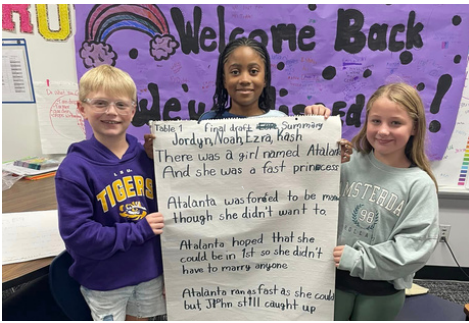 Welcome Back
We've missed
Table 1 Final draft Summary
Jordyn, Noah, Ezra, Kash
There was a girl named Atalan
And she was a fast princess
Atalanta was forded to be ma
though she didn't want to.
Atalanta hoped that she
could be in 1st so she didn't
have to marry anyone
Atalanta ran as fast as she could
but, John still caught up
L S U
TIGERS
AMSTERDA
98